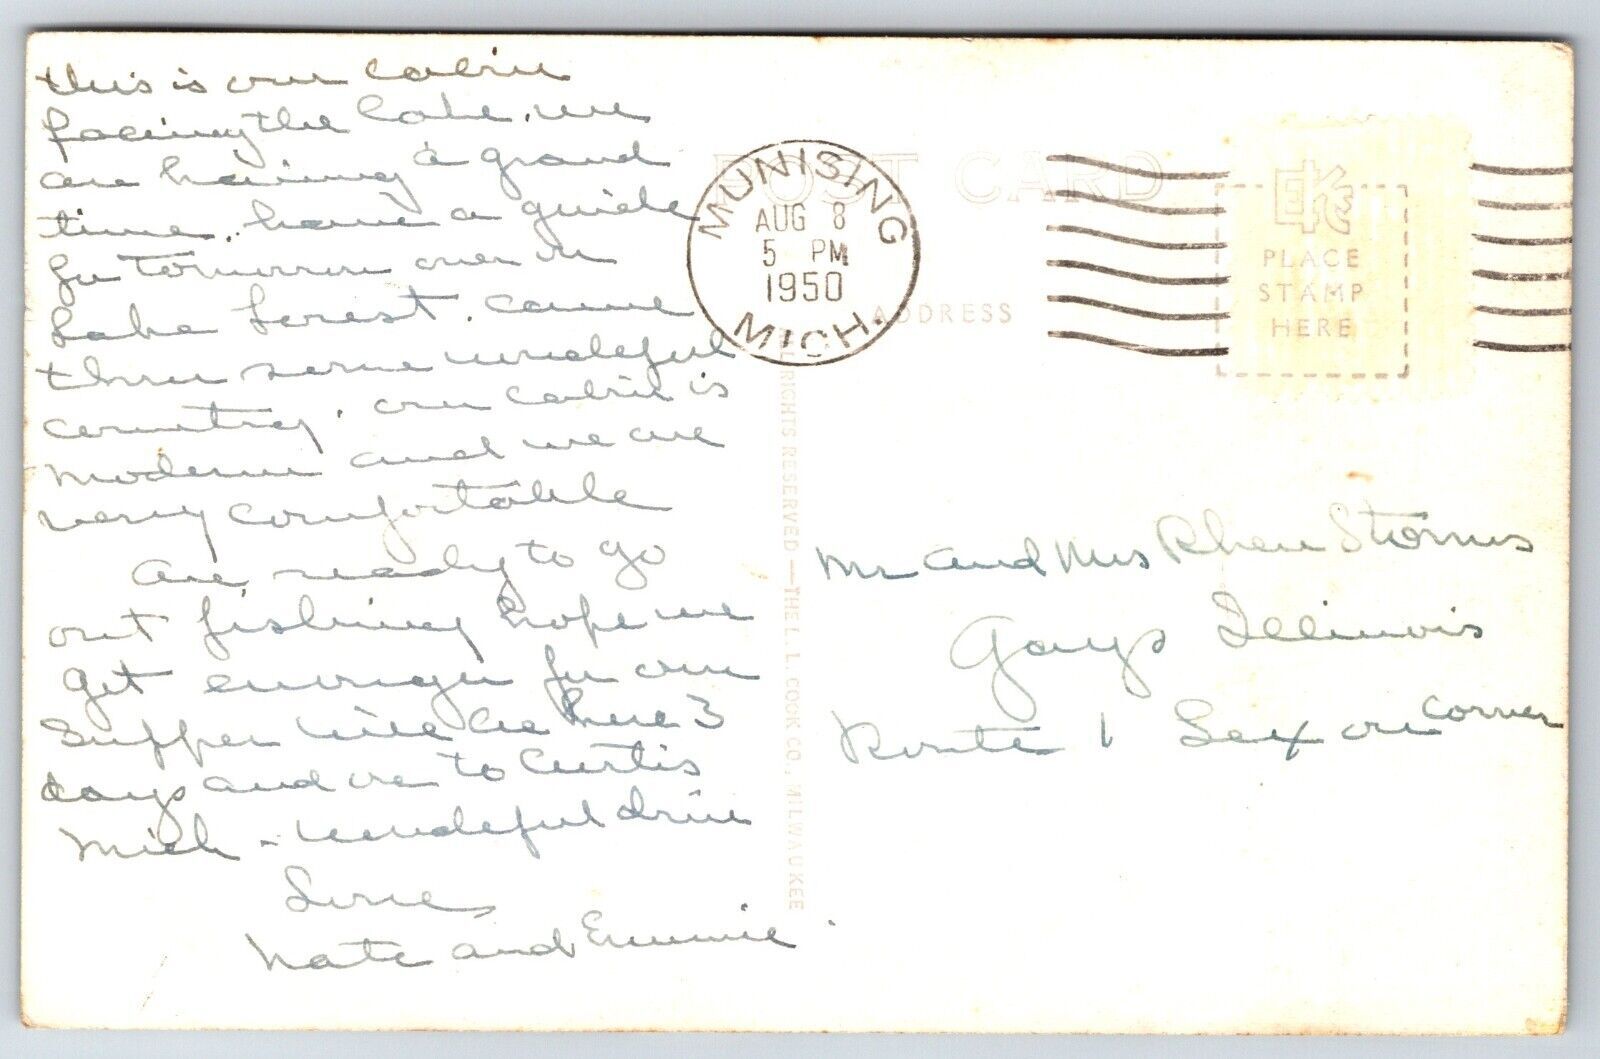 this is our cabin
facing the lake, we
are having a grand
time. have a guide
for tomorrow over in
Lake Forest. came
thru some wonderful
country. our cabin is
modern and we are
very comfortable
are ready to go
out fishing hope we
get enough for our
supper will be here 3
days and on to Curtis
Mich - wonderful drive
Love,
Nate and Emmie.
POST CARD
MUNISING
AUG 8
5 PM
1950
MICH.
ADDRESS
EKC
PLACE
STAMP
HERE
RIGHTS RESERVED — THE L. L. COOK CO., MILWAUKEE
Mr and Mrs Rheu Storms
Gays Illinois
Route 1 Sexson Corner